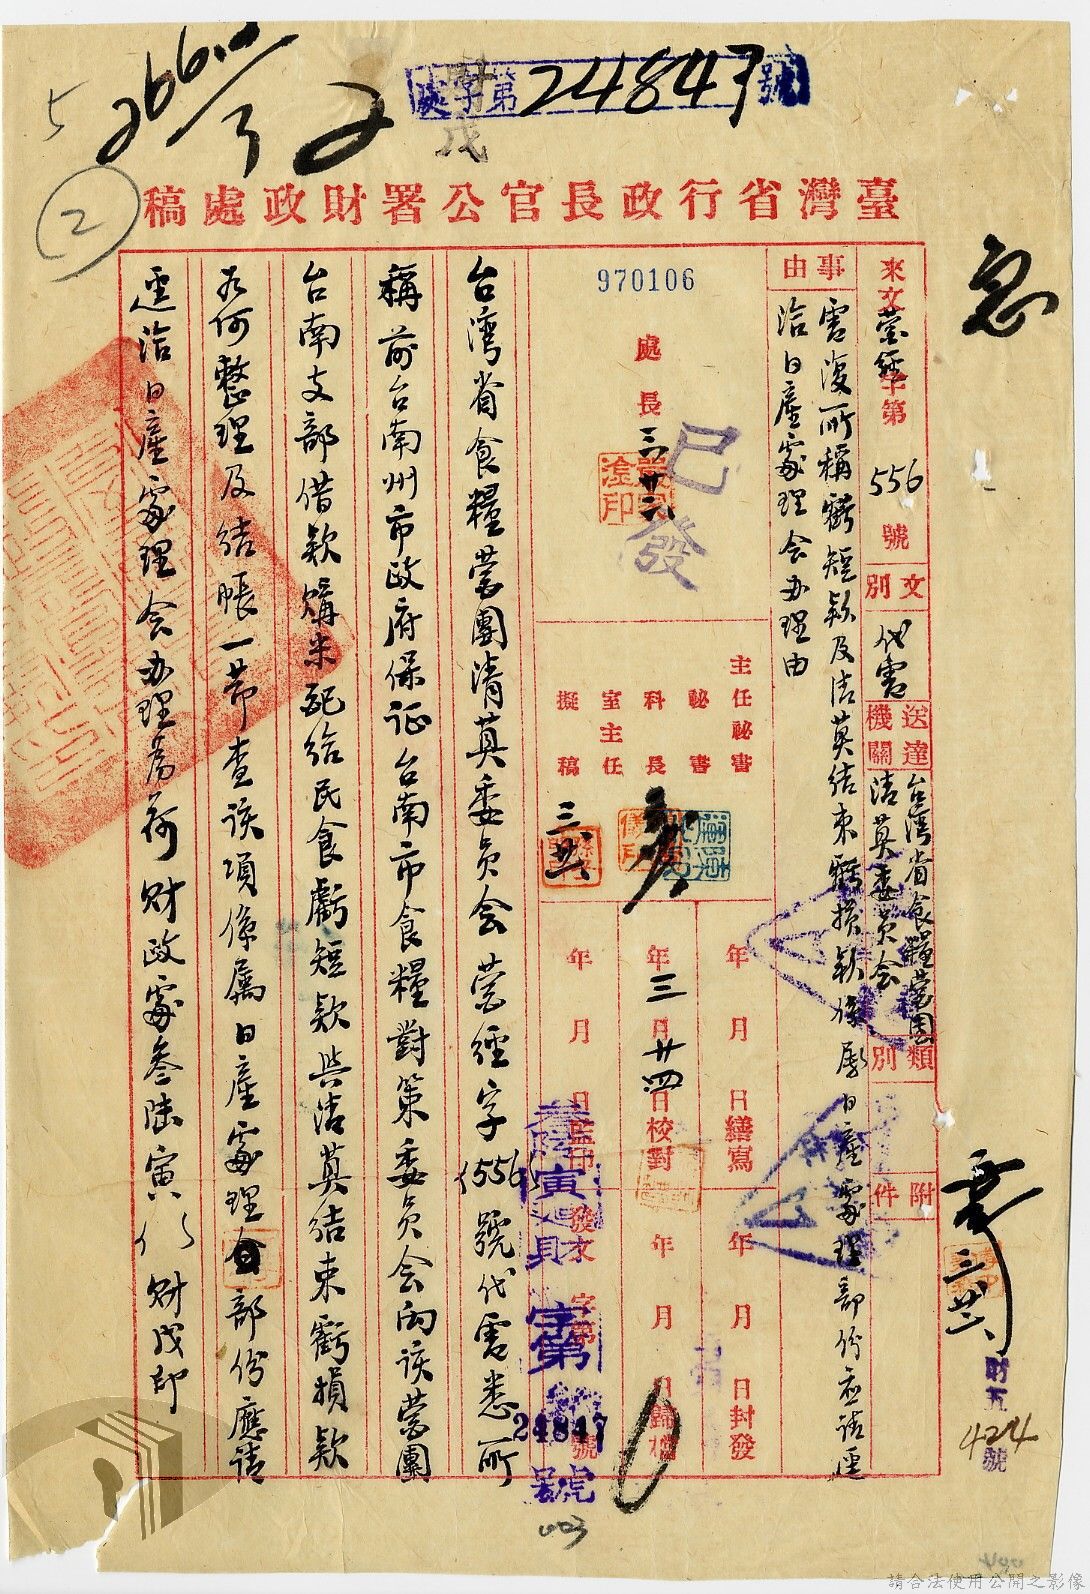 266.0/3
2
5
2
處字第24843號
財戊
臺灣省行政長官公署財政處稿
急
來文營經字第556號
文別
代電
送達機關
台湾省食糧营团
清莫委員会
類別
附件
事由
電復所稱虧短款及清莫結束虧損款係屬日產處理部份应請逕
洽日產處理会办理由
970106
處長
三廿六
已發
主任秘書
秘書
科長
室主任
擬稿
三廿
年月日繕寫
年三月廿四日校對
年月日監印
年月日封發
年月日歸檔
發文 字第 號
寅
字第24847號
台湾省食糧营團清莫委員会营經字(556)號代電悉所
稱前台南州市政府保証台南市食糧對策委員会向該营團
台南支部借款購米配給民食虧短款與清莫結束虧損款
為何整理及結帳一節查該項係屬日產處理部份應請
逕洽日產處理会办理為荷財政處叁陆寅 財戊印
三廿六
財五424號
003
請合法使用公開之影像